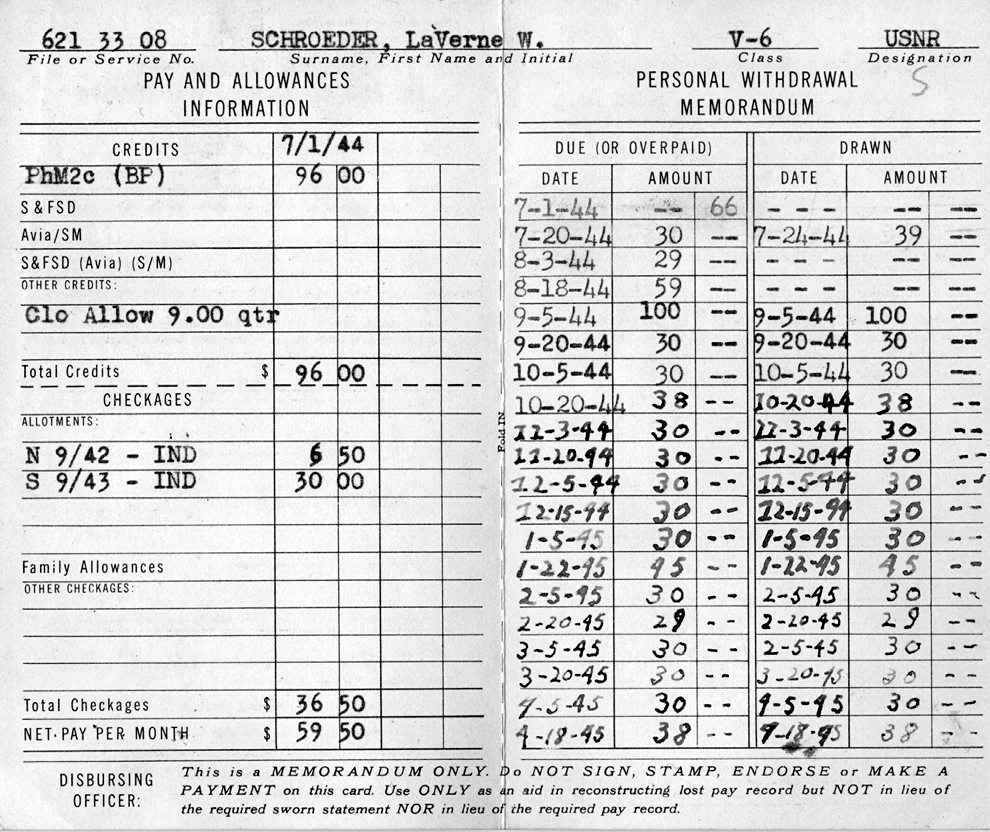 621 33 08 SCHROEDER, LaVerne W. V-6 USNR
File or Service No. Surname, First Name and Initial Class Designation
S
PAY AND ALLOWANCES
INFORMATION
CREDITS 7/1/44
PhM2c (BP) 96 00
S & FSD
Avia/SM
S&FSD (Avia) (S/M)
OTHER CREDITS:
Clo Allow 9.00 qtr
Total Credits $ 96 00
CHECKAGES
ALLOTMENTS:
N 9/42 - IND 6 50
S 9/43 - IND 30 00
Family Allowances
OTHER CHECKAGES:
Total Checkages $ 36 50
NET PAY PER MONTH $ 59 50
Fold IN
PERSONAL WITHDRAWAL
MEMORANDUM
DUE (OR OVERPAID) DRAWN
DATE AMOUNT DATE AMOUNT
7-1-44 -- 66 - - - -- --
7-20-44 30 -- 7-24-44 39 --
8-3-44 29 -- - - - - -- --
8-18-44 59 -- - - - - -- --
9-5-44 100 -- 9-5-44 100 --
9-20-44 30 -- 9-20-44 30 --
10-5-44 30 -- 10-5-44 30 --
10-20-44 38 -- 10-20-44 38 --
11-3-44 30 -- 11-3-44 30 --
11-20-44 30 -- 11-20-44 30 --
12-5-44 30 -- 12-5-44 30 --
12-15-44 30 -- 12-15-44 30 --
1-5-45 30 -- 1-5-45 30 --
1-22-45 45 -- 1-22-45 45 --
2-5-45 30 -- 2-5-45 30 --
2-20-45 29 -- 2-20-45 29 --
3-5-45 30 -- 2-5-45 30 --
3-20-45 30 -- 3-20-45 30 --
4-5-45 30 -- 4-5-45 30 --
4-18-45 38 -- 4-18-45 38 --
DISBURSING
OFFICER:
This is a MEMORANDUM ONLY. Do NOT SIGN, STAMP, ENDORSE or MAKE A
PAYMENT on this card. Use ONLY as an aid in reconstructing lost pay record but NOT in lieu of
the required sworn statement NOR in lieu of the required pay record.